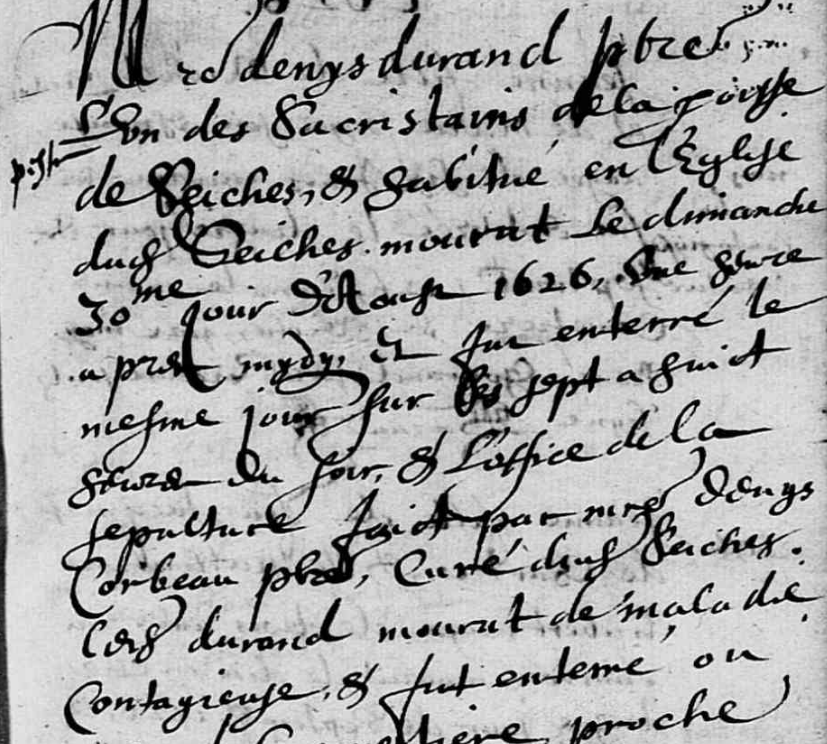 Mre denys durand pbre
L'un des Sacristains de la paroisse
peste
de Seiches, & habitué en l'Eglise
dud Seiches. mourut Le dimanche
30me Jour D'Aoust 1626, Une heure
apres mydy, Et fut enterré le
mesme jour sur les sept a huict
heures du soir, & L'office de la
sepulture faict par mre denys
Corbeau pbre, Curé dud Seiches.
Led durand mourut de maladie
Contagieuse, & fut enterré ou
proche